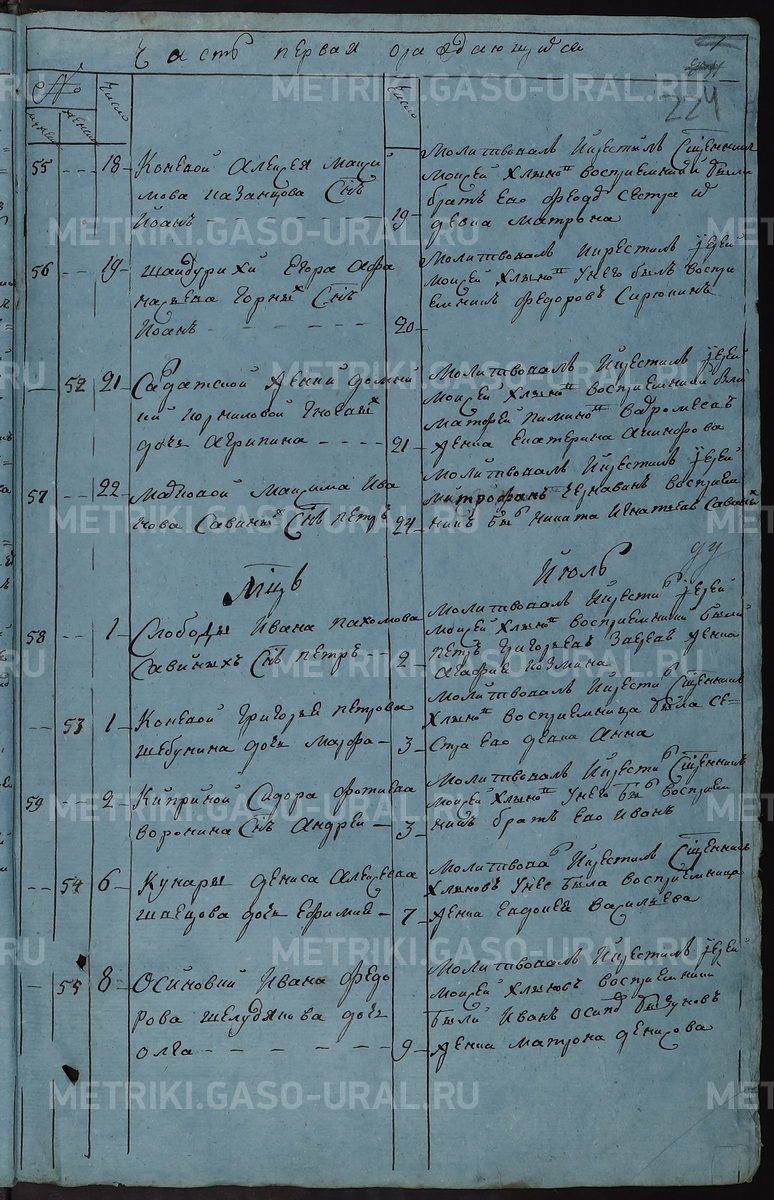 Часть первая о раждающихся
224
№
число
число
55 18 Коневой Алексея Макси
мова Казанцова сынъ
Иоанъ 19
Молитвовалъ и крестилъ священникъ
Моисей Хлыновъ восприемники были
братъ его Феодоръ сестра и
девка Матрона
56 19 Шайдурихи Егора Афа
насьева Горныхъ сынъ
Иоанъ 20
Молитвовалъ и крестилъ иерей
Моисей Хлыновъ у него былъ воспри
емникъ Федоровъ
52 21 Салдатской женки Домны
Корниловой
дочь Агрипина 21
Молитвовалъ и крестилъ иерей
Моисей Хлыновъ восприемники были
Матфей Пилиновъ
девка Екатерина
57 22 Максима Ива
нова Савиныхъ сынъ Петръ 24
Молитвовалъ и крестилъ иерей
Митрофанъ восприем
никъ бы Никита Игнатьевъ Савиныхъ
Мцъ Июль
58 1 Слободы Ивана Пахомова
Савиныхъ сынъ Петръ 2
Молитвовалъ и крестилъ иерей
Моисей Хлыновъ восприемники были
Петръ Григорьевъ девка
Агафия Козмина
53 1 Коневой Григорья Петрова
Шебунина дочь Марфа 3
Молитвовалъ и крестилъ священникъ
Хлыновъ восприемница была се
стра его девка Анна
59 2 Киприной Сидора Фотиева
Воронина сынъ Андрей 3
Молитвовалъ и крестилъ священникъ
Моисей Хлыновъ у него бы восприем
никъ братъ его Иванъ
54 6 Кунары Дениса Алексеева
Швецова дочь Ефимия 7
Молитвовалъ и крестилъ священникъ
Хлыновъ у нее была восприемница
девка Евдокия Васильева
55 8 Осиновки Ивана Федо
рова Шелудякова дочь
Олга 9
Молитвовалъ и крестилъ иерей
Моисей Хлыновъ восприемники
были Иванъ Осиповъ
девка Матрона Денисова
METRIKI.GASO-URAL.RU